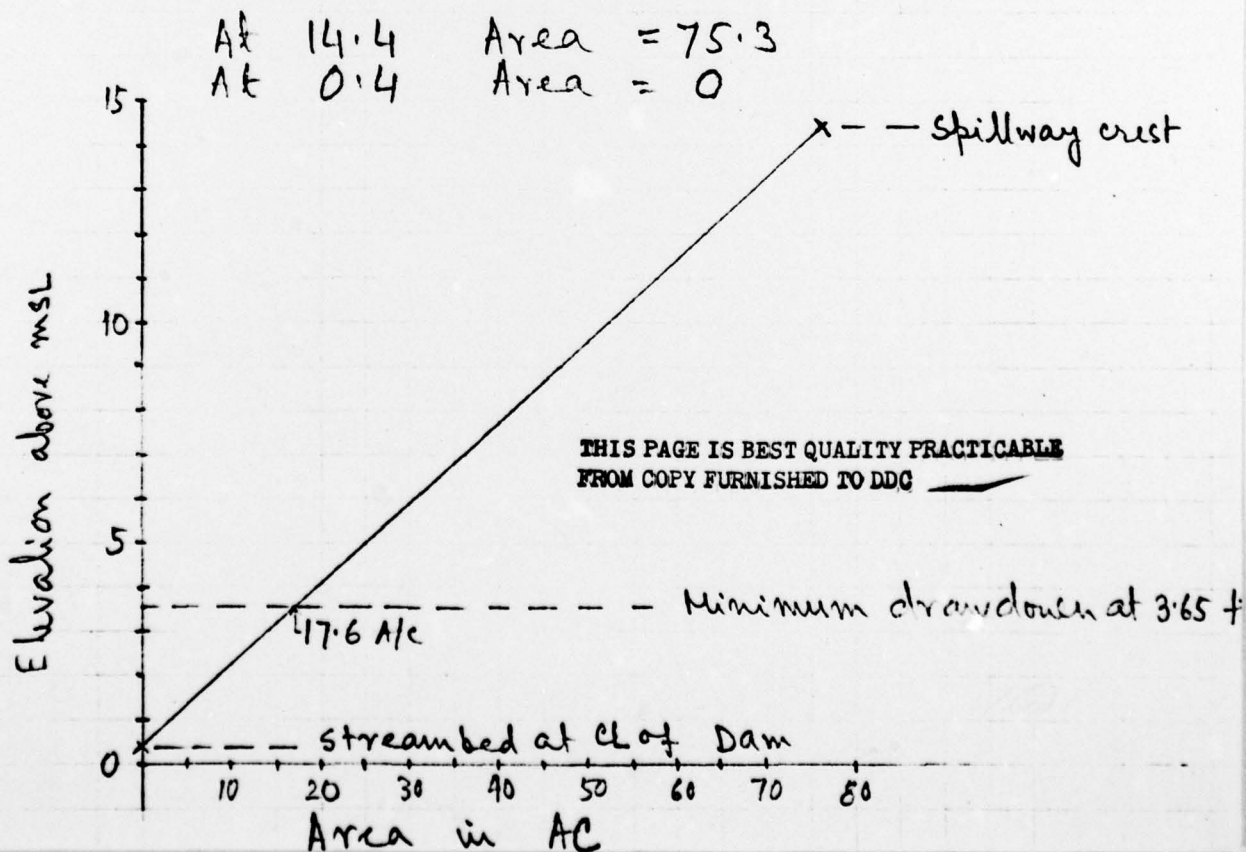 At 14.4 Area = 75.3
At 0.4 Area = 0
15
Spillway crest
Elevation above msL
10
THIS PAGE IS BEST QUALITY PRACTICABLE
FROM COPY FURNISHED TO DDC
5
Minimum drawdown at 3.65 f
17.6 A/c
streambed at CL of Dam
0
10 20 30 40 50 60 70 80
Area in AC